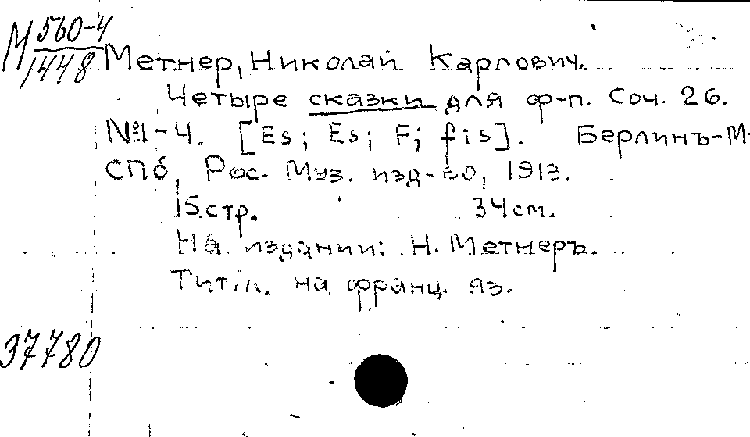 М 560-4
1448
Метнер, Николай Карлович.
Четыре сказки для ф-п. Соч. 26.
№1-4. [Es; Es; F; fis]. Берлинъ-М-
СПб, Рос. Муз. изд-во, 1913.
15 стр. 34 см.
На издании: Н. Метнеръ.
Титл. на франц. яз.
37780